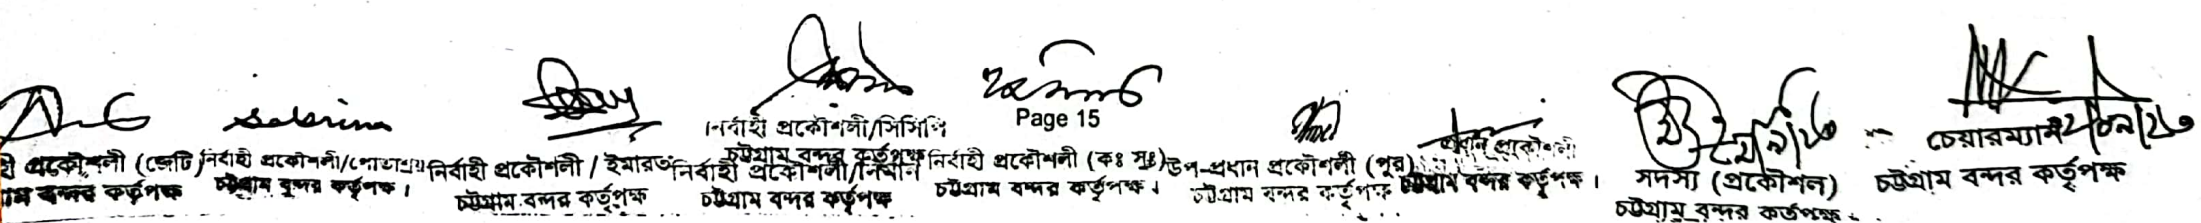 Sabrina
Page 15
নির্বাহী প্রকৌশলী/সিসিপি
চট্টগ্রাম বন্দর কর্তৃপক্ষ
প্রকৌশলী (জেটি)
বন্দর কর্তৃপক্ষ
নির্বাহী প্রকৌশলী/পোতাশ্রয়
চট্টগ্রাম বন্দর কর্তৃপক্ষ।
নির্বাহী প্রকৌশলী / ইমারত
চট্টগ্রাম বন্দর কর্তৃপক্ষ
নির্বাহী প্রকৌশলী/নির্মাণ
চট্টগ্রাম বন্দর কর্তৃপক্ষ
নির্বাহী প্রকৌশলী (কঃ সুঃ)
চট্টগ্রাম বন্দর কর্তৃপক্ষ।
উপ-প্রধান প্রকৌশলী (পুর)
চট্টগ্রাম বন্দর কর্তৃপক্ষ
প্রধান প্রকৌশলী
চট্টগ্রাম বন্দর কর্তৃপক্ষ।
সদস্য (প্রকৌশল)
চট্টগ্রাম বন্দর কর্তৃপক্ষ
চেয়ারম্যান
চট্টগ্রাম বন্দর কর্তৃপক্ষ